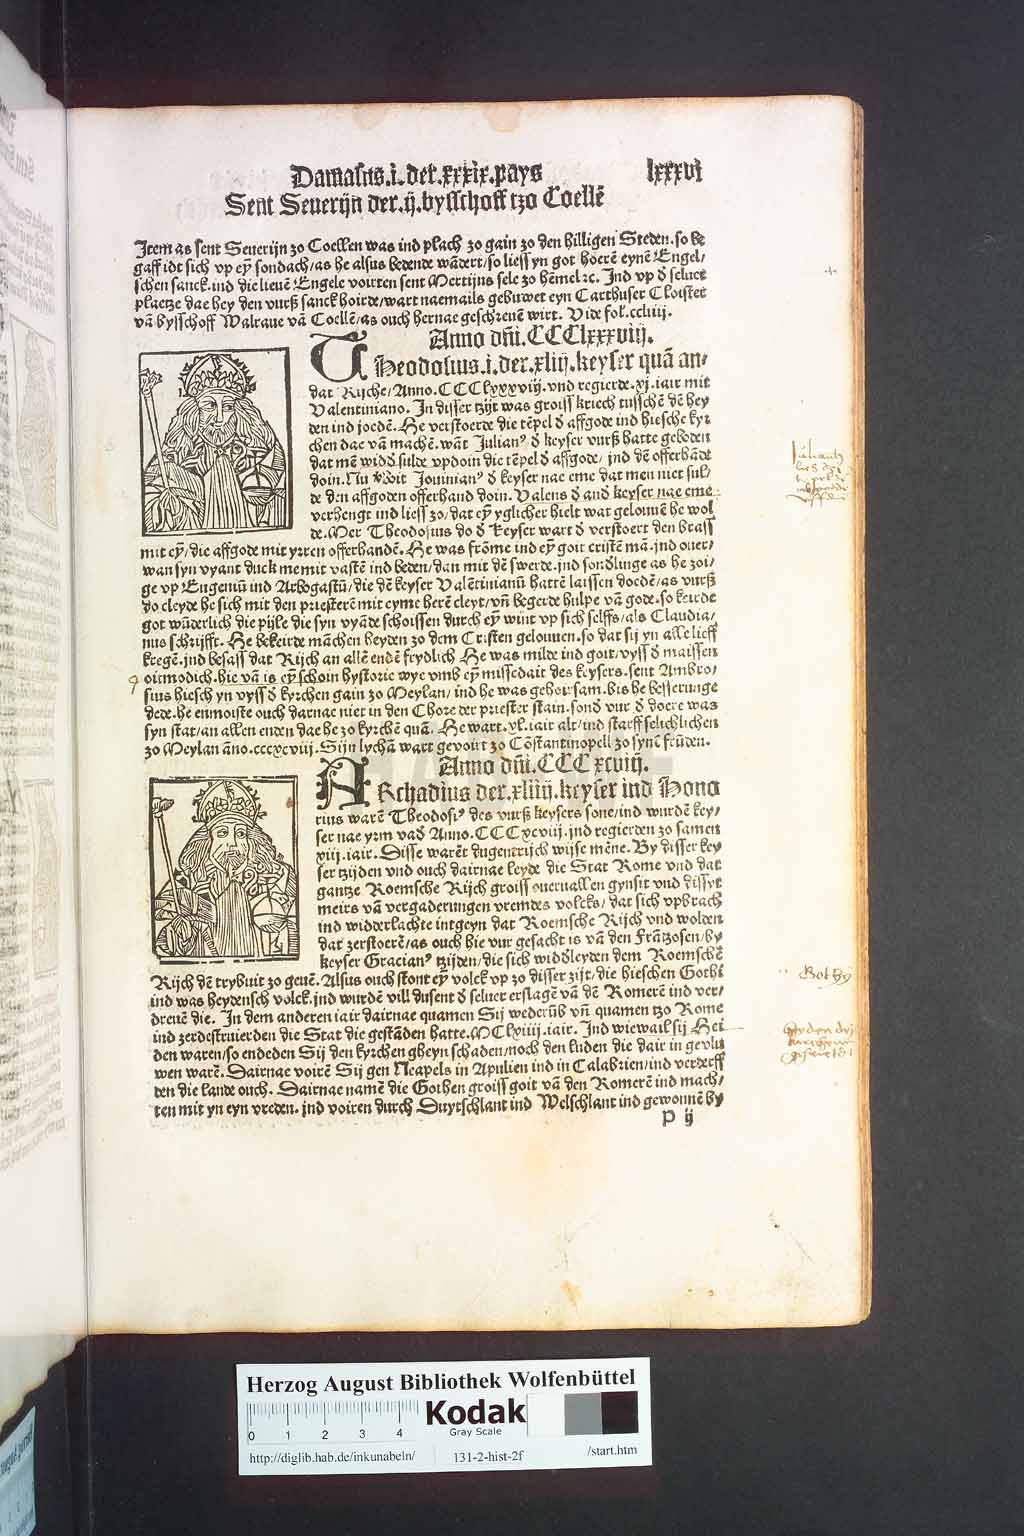 Damasus.i.der.xxxix.pays lxxxvi
Sent Seuerijn der.ij.bysschoff tzo Coellē
Item as sent Seuerijn zo Coellen was ind plach zo gain zo den hilligen Steden.so be
gaff idt sich vp eyn sondach/as he alsus bedende wādert/so liess yn got hoerē eynē Engel/
schen sanck.ind die lieuē Engele voirten sent Mertijns sele zo hēmel ꝛc. Ind vp d seluer
plaetze dae hey den vurß sanck hoirde/wart naemails gebuwet eyn Carthuser Cloister
vā bysschoff Walraue vā Coellē/as ouch hernae geschreuē wirt. Vide fol.ccliiij.
Anno dn̄i.CCClxxxviij.
THeodosius.i.der.xliij.keyser quā an/
dat Rijche/Anno.CCClxxxviij.vnd regierde.xj.iair mit
Valentiniano. In disser tzijt was groiss kriech tusschē dē hey
den ind joedē. He verstoerde die tēpel d affgode ind hiesche kyr
chen dae vā machē.want Julianꝰ d keyser vurß hatte geboden
dat mē widd̄ sulde vpdoin die tēpel d affgode/ jnd dē offerhāde
doin. Nu Jouinianꝰ d keyser nae eme dat men niet sul/
de den affgoden offerhand doin. Valens d and keyser nae eme
verhengt ind liess zo/dat ey yglicher hielt wat gelouuē he wol
de. Mer Theodosius do d keyser wart d verstoert den
mit ey/die affgode mit yren offerhandē. He was frōme ind ey goit cristē mā.jnd ouer/
wan syn vyant duck me mit vastē ind beden/dan mit dē swerde.jnd sondlinge as he zoi/
ge vp Eugeniū ind Arbogastū/die dē keyser Valētinianū hattē laissen doedē/as vurß
do cleyde he sich mit den priesterē mit eyme herē cleyt/vn̄ begerde hulpe vā gode.so keirde
got wāderlich die pijle die syn vyāde schoissen durch ey wint vp sich selffs/als Claudia/
nus schrijfft. He bekeirde māchen heyden zo dem Cristen gelouuen.so dat sij yn alle lieff
kregē.jnd besass dat Rijch an allē endē frydlich He was milde ind goit/vyss d maissen
oitmodich.hie vā is ey schoin hystorie wye vmb ey missedait des keysers.sent Ambro/
sius hiesch yn vyss d kyrchen gain zo Meylan/ind he was gehoirsam.bis he besserunge
dede.he enmoiste ouch darnae niet in den Chore der priester stain.sond vur d doere was
syn stat/an allen enden dae he zo kyrchē quā. He wart.xl.iair alt/ind starff selichlichen
zo Meylan āno.cccxcviij. Sijn lychā wart gevoirt zo Cōstantinopell zo synē frūden.
Anno dn̄i.CCC xcviij.
ARchadius der.xliiij.keyser ind Hono
rius warē Theodosiꝰ des vurß keysers sone/ind wurdē key/
ser nae yrm vad Anno.CCCxcviij.jnd regierden zo samen
xiij.iair. Disse warēt dugentrijch wijse mēne. By disser key
ser tzijden vnd ouch dairnae leyde die Stat Rome vnd dat
gantze Roemsche Rijch groiss ouervallen gynsijt vnd dissijt
meirs vā vergaderungen vremdes volcks/ dat sich vpbrach
ind widderlachte intgeyn dat Roemsche Rijch vnd wolden
dat zerstoerē/as ouch hie vur gesacht is vā den Frātzosen/by
keyser Gracianꝰ tzijden/die sich widd̄leyden dem Roemschē
Rijch dē trybuit zo geuē. Alsus ouch stont ey volck vp zo disser zijt/die hieschen Gothi
ind was heydensch volck.jnd wurdē vill dusent d seluer erslagē vā dē Romerē ind ver/
dreuē die. In dem anderen iair dairnae quamen Sij wederūb vn̄ quamen tzo Rome
ind zerdestruierden die Stat die gestāden hatte.MClxiiij.iair. Ind wiewail sij Hei
den waren/so endeden Sij den kyrchen gheyn schaden/noch den luden die dair in gevlu
wen warē. Dairnae voirē Sij gen Neapels in Apulien ind in Calabrien/ind verderff
den die lande ouch. Dairnae namē die Gothen groiss goit vā den Romerē ind mach/
ten mit yn eyn vreden. jnd voiren durch Duytschlant ind Welschlant ind gewonnē by
P ij
Gothj
Herzog August Bibliothek Wolfenbüttel
0 1 2 3 4
Kodak
Gray Scale
http://diglib.hab.de/inkunabeln/ 131-2-hist-2f /start.htm